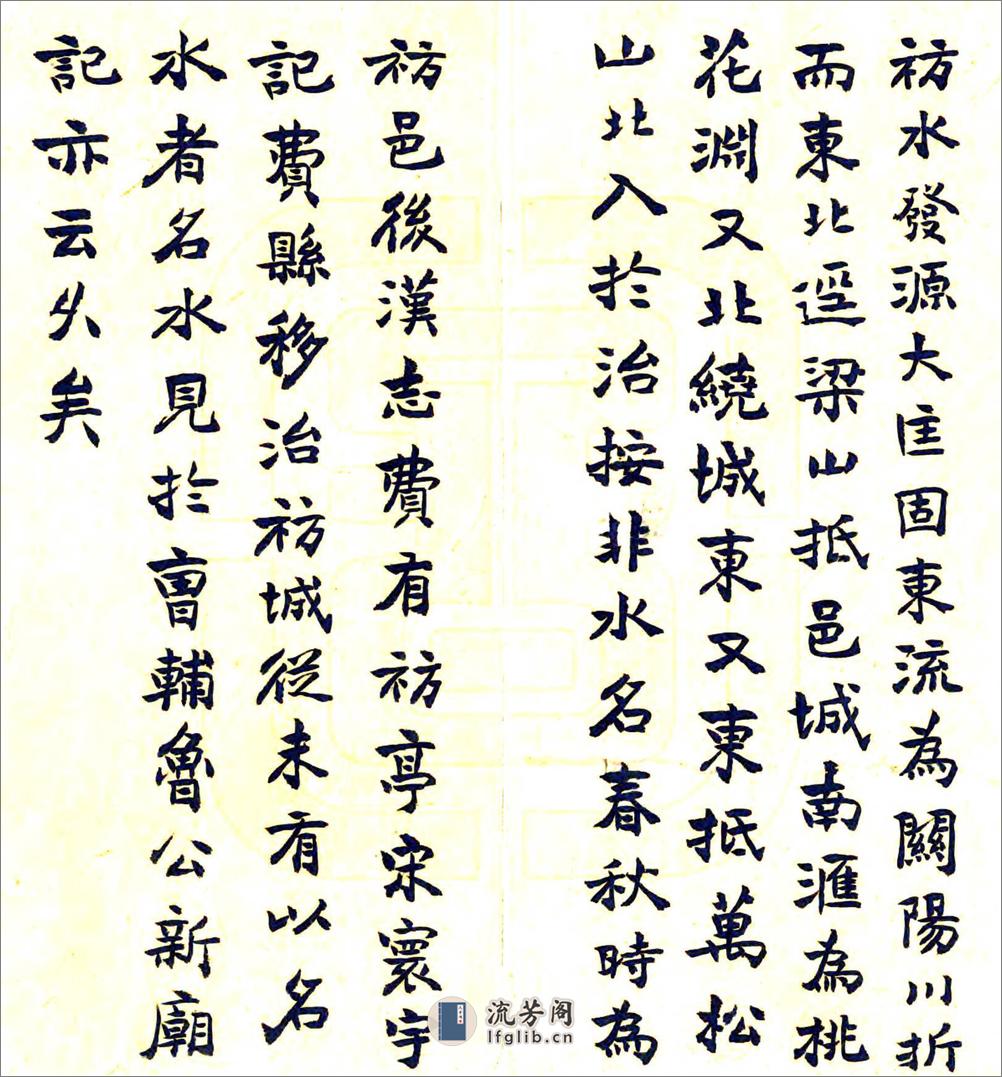 祊水發源大匡固東流為關陽川折
而東北逕梁山抵邑城南滙為桃
花淵又北繞城東又東抵萬松
山北入於治按非水名春秋時為
祊邑後漢志費有祊亭宋寰宇
記費縣移治祊城從未有以名
水者名水見於曺輔魯公新廟
記亦云久矣
流芳阁
lfglib.cn